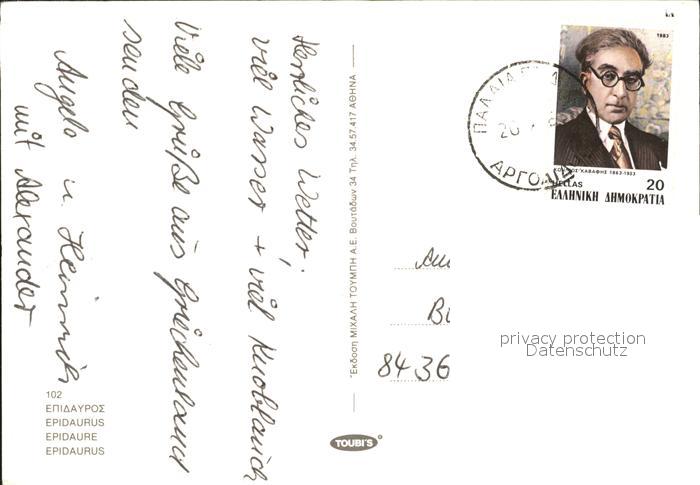 Herrliches Wetter,
viel Wasser + viel Knoblauch
Viele Grüße aus Griechenland
senden
Angela u. Heinrich
mit Alexander
102
ΕΠΙΔΑΥΡΟΣ
EPIDAURUS
EPIDAURE
EPIDAURUS
Έκδοση ΜΙΧΑΛΗ ΤΟΥΜΠΗ Α.Ε. Βουτάδων 34 Τηλ. 34.57.417 ΑΘΗΝΑ
TOUBI'S
1983
ΚΑΒΑΦΗΣ 1863-1933
HELLAS 20
ΕΛΛΗΝΙΚΗ ΔΗΜΟΚΡΑΤΙΑ
ΑΡΓΟΛΙΔ
8436
privacy protection
Datenschutz